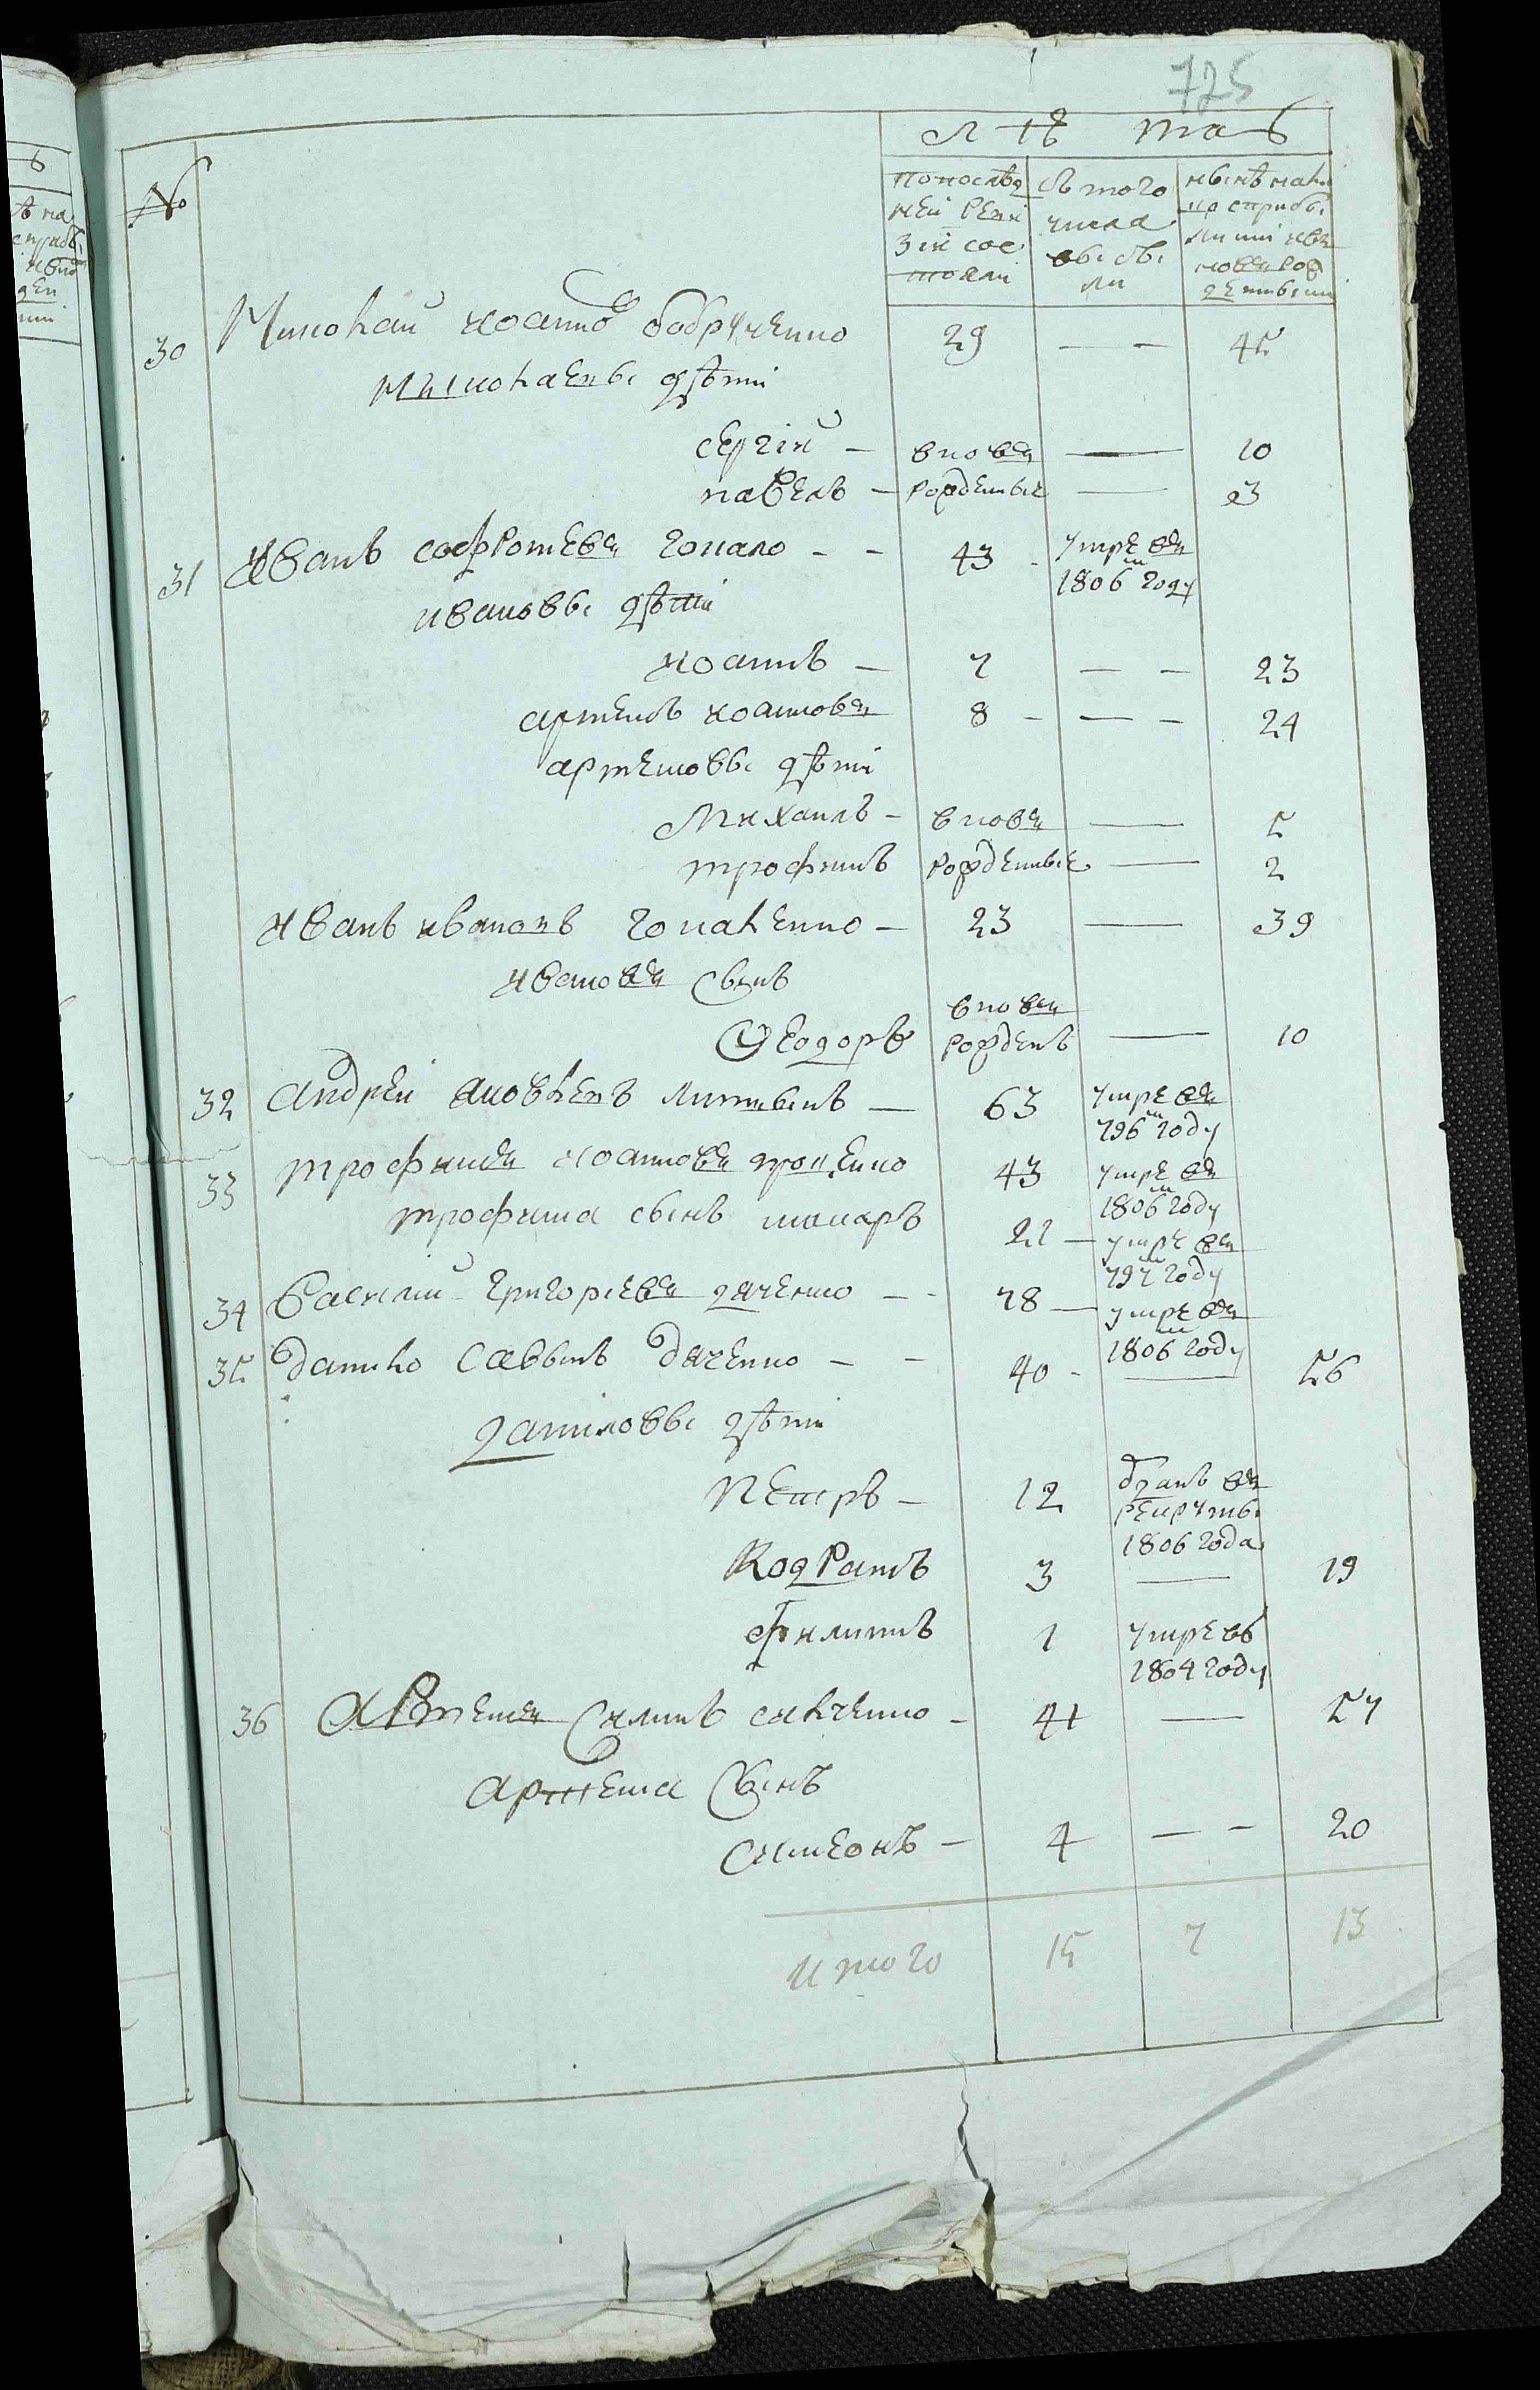 725
№
Лѣта
по послѣд
ней реви
зіи сос
тояли
съ того
числа
выбы
ли
нынѣ на ли
цо с прибы
лими и вн
новь рож
денными
30 Николай Иоанновъ бобрученко 29 — — 45
Николаевы дѣти
Сергій — вновь — 10
павелъ — рожденные — 3
31 Иванъ Софроневъ гонало - - 43 - умре въ
1806м году
ивановы дѣти
иоаннъ — 7 — — 23
артемъ иоанновъ 8 - — - 24
артемовы дѣти
Михаилъ - вновь — 5
трофимъ рожденные — 2
Иванъ ивановъ гоналенко — 23 — 39
Ивановъ сынъ
вновь
Ѳеодоръ рожденъ — 10
32 андрей яковлевъ литвинъ — 63 умре въ
796м году
33 трофимъ иоанновъ проценко 43 умре въ
1806м году
трофима сынъ макаръ 21 — умре въ
797м году
34 Василий григоріевъ дяченко — - 78 — умре въ
1806м году
35 данило Саввинъ дяченко — - 40 - — 56
даниловы дѣти
Петръ — 12 отданъ въ
рекруты
1806 года
Кодратъ 3 — 19
Филиппъ 1 умре въ
1804 году
36 Артемъ Силинъ силченко - 41 — 57
Артема Сынъ
Симеонъ — 4 — - 20
Итого 15 7 13